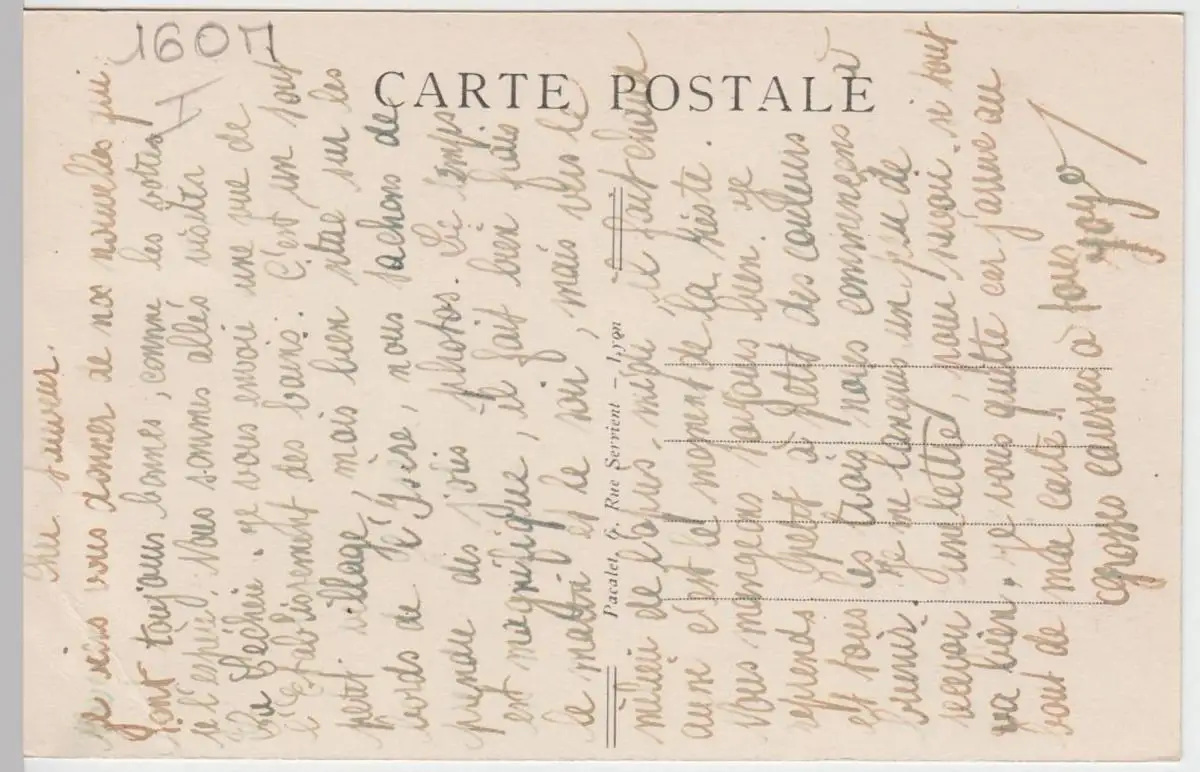 1607
CARTE POSTALE
Pacalet, 6, Rue Servient – Lyon
Je viens vous doner de nos nouvelles qui
sont toujours bonnes, comme les votres
je l'espère. Nous sommes allés visiter
La Léchère. Je vous envoi une vue de
l'Etablissement des bains. C'est un tout
petit village, mais bien situé sur les
bords de l'Isère, nous tachons de
prendre des jolis photos. Le temps
est magnifique, il fait bien frais
le matin et le soir, mais vers le
milieu de l'apuis-midi il fait chaud
aussi c'est le moment de la sieste.
Nous mangeons toujours bien. Je
reprends petit à petit des couleurs
et tous les trois nous commençons à
brunir. Je me languis un peu de
recevoir une lettre, pour savoir si tout
va bien. Je vous quitte car j'arrive au
bout de ma carte.
Grosses caresses à tous
Yoyo